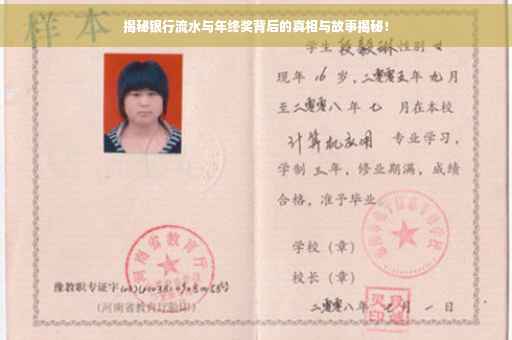 揭秘银行流水与年终奖背后的真相与故事揭秘！
样本
学生段毅琳性别女
现年16岁，二零零五年九月
至二零零八年七月在本校
计算机应用 专业学习，
学制三年，修业期满，成绩
合格，准予毕业。
学校（章）
校长（章）
二零零八年七月一日
河南省教育厅
豫教职专证字
（河南省教育厅验印）